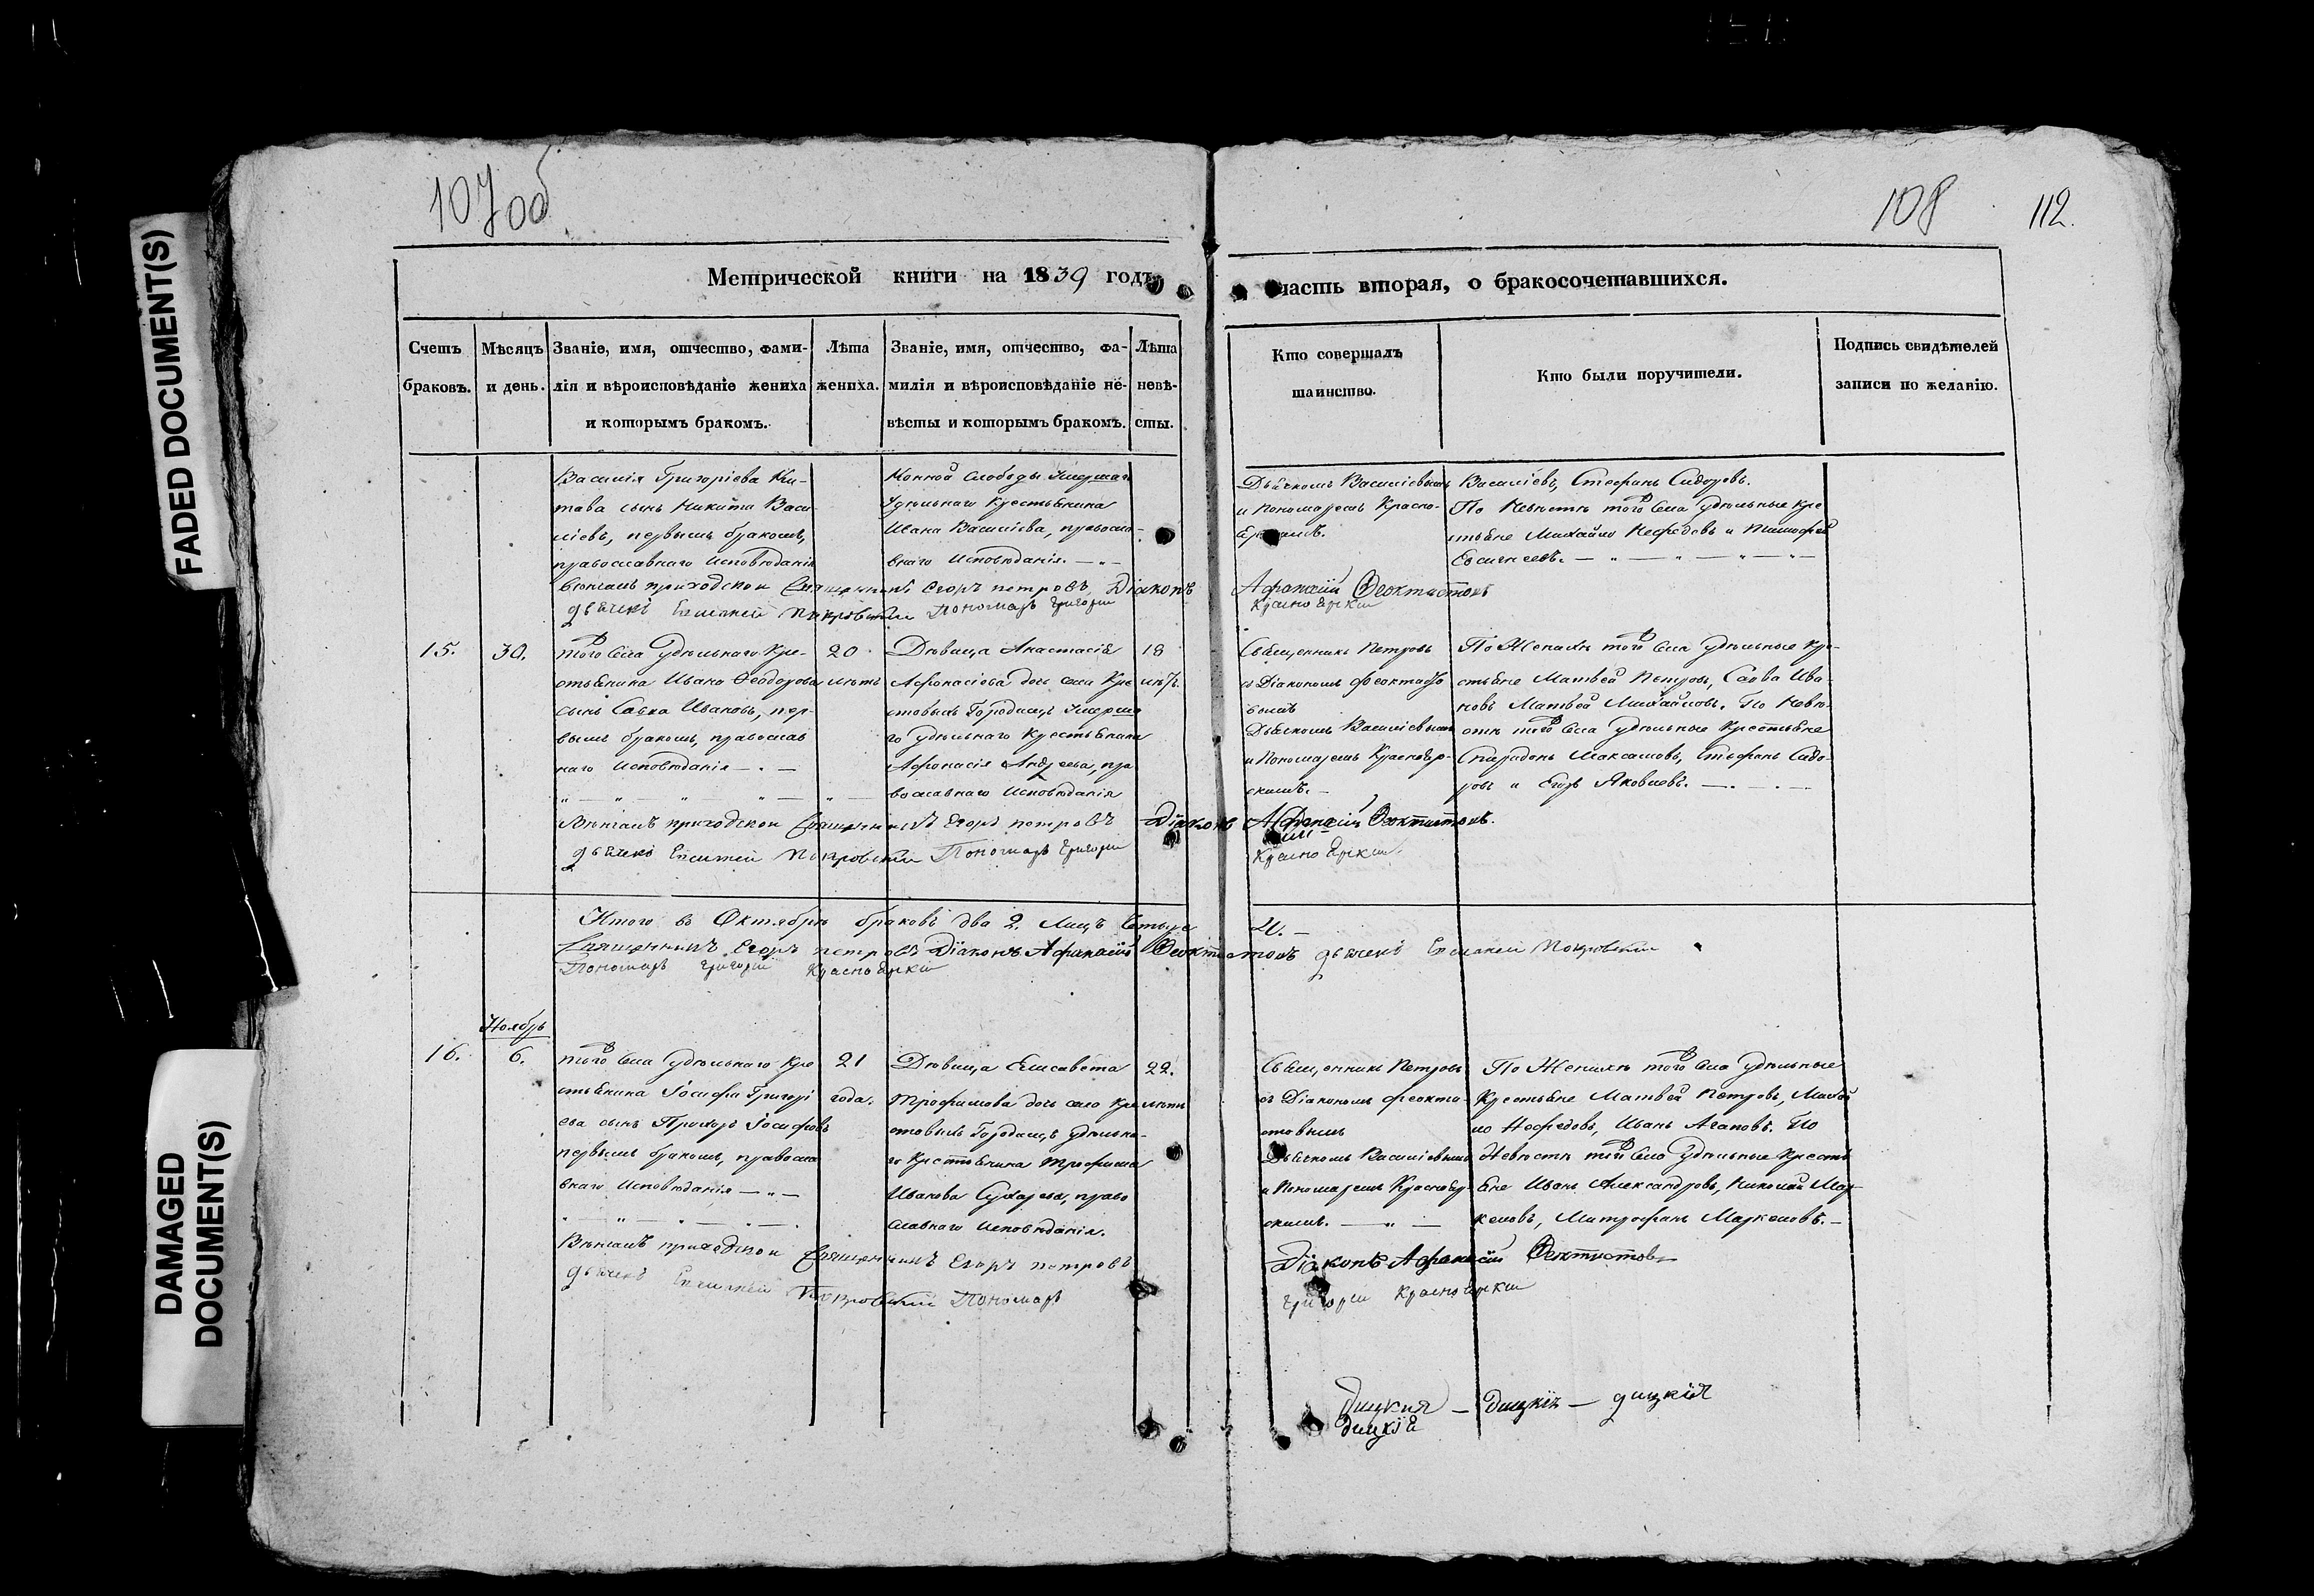 FADED DOCUMENT(S)
DAMAGED
DOCUMENT(S)
107 об
108
112.
Метрической книги на 1839 годъ
часть вторая, о бракосочетавшихся.
Счетъ браковъ.
Мѣсяцъ и день.
Званіе, имя, отчество, фами-
лія и вѣроисповѣданіе жениха
и которымъ бракомъ.
Лѣта
жениха.
Званіе, имя, отчество, фа-
милія и вѣроисповѣданіе не-
вѣсты и которымъ бракомъ.
Лѣта
невѣ-
сты.
Кто совершалъ
таинство.
Кто были поручители.
Подпись свидѣтелей
записи по желанію.
Василія Григоріева Ки-
това сынъ Никита Васи-
ліевъ, первымъ бракомъ,
православнаго исповѣданія
Конной слободы умершаго
удѣльнаго крестьянина
Ивана Василіева, правосла-
внаго исповѣданія.
Дьячкомъ Василіевымъ
и Пономаремъ Красно-
Василіевъ, Стефанъ Сидоровъ.
По невѣстѣ того села удѣльные кре
стьяне Михайло Нефедовъ и Тимофей
Евсигнеевъ.
Вѣнчалъ приходской Священникъ Егоръ Петровъ Діаконъ Афанасій Феоктистовъ
дьячекъ Евсигней Покровскій Пономарь Григорій Красноярскій
15.
30.
того села удѣльнаго кре-
стьянина Ивана Феодорова
сынъ Савва Ивановъ, пер-
вымъ бракомъ, православ
наго исповѣданія
20
лѣтъ
Дѣвица Анастасія
Афонасіева дочь села Кре
стовыхъ Городищъ умерша
го удѣльнаго крестьянина
Афонасія Андреева, пра
вославнаго исповѣданія
18
лѣтъ.
Священникъ Петровъ
съ Діакономъ Феоктисто
вымъ
Дьячкомъ Василіевымъ
и Пономаремъ Краснояр-
скимъ.
По Женихѣ того села удѣльные кре-
стьяне Матвей Петровъ, Савва Ива-
новъ Матвей Михайловъ. По Невѣ-
стѣ того села удѣльные крестьяне
Спиридонъ Максимовъ, Стефанъ Сидо-
ровъ и Егоръ Яковлевъ.
Вѣнчалъ приходской Священникъ Егоръ Петровъ Діаконъ Афанасій Феоктистовъ.
дьячекъ Евсигней Покровскій Пономарь Григорій Красноярскій
Итого въ Октябрѣ браковъ два 2. лицъ четыре 4.
Священникъ Егоръ Петровъ Діаконъ Афанасій Феоктистовъ дьячекъ Евсигней Покровскій
Пономарь Григорій Красноярскій
Ноябрь
16.
6.
того села удѣльнаго кре
стьянина Іосифа Григорі
ева сынъ Прохоръ Іосифовъ
первымъ бракомъ, правосла
внаго исповѣданія
21
года.
Дѣвица Елисавета
Трофимова дочь село Кре
стовыхъ Городищъ удѣльна-
го крестьянина Трофима
Иванова Сухарева, право
славнаго исповѣданія.
22.
лѣтъ
Священникъ Петровъ
съ Діакономъ Феокти-
стовымъ
Дьячкомъ Василіевымъ
и Пономаремъ Краснояр-
скимъ.
По Женихѣ того села удѣльные
Крестьяне Матвей Петровъ, Михай
ло Нефедовъ, Иванъ Агаповъ. По
Невѣстѣ того села удѣльные кресть
яне Иванъ Александровъ, Николай Мар-
келовъ, Митрофанъ Маркеловъ.
Вѣнчалъ приходской Священникъ Егоръ Петровъ Діаконъ Афанасій Феоктистовъ
дьячекъ Евсигней Покровскій Пономарь Григорій Красноярскій